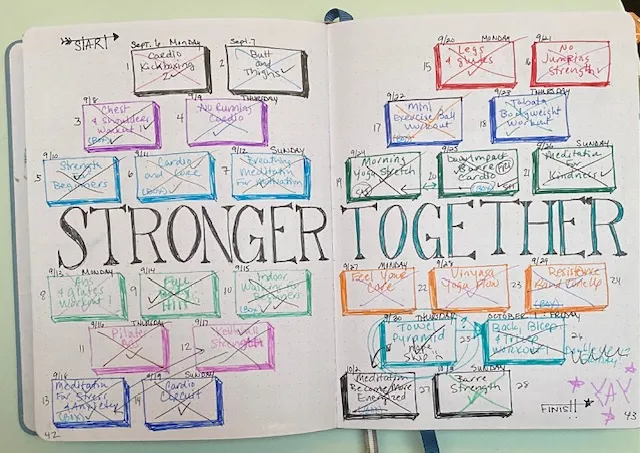 START
Sept. 6 Monday
1 Cardio
Kickboxing
2
Sept. 7
2 Butt
and
Thighs
9/8
3 Chest
& Shoulders
Workout 1
(BOX)
9/9 THURSDAY
4 No Running
Cardio
9/10
5 Strength
Beginners
9/11
6 Cardio
and Core
(BOX)
9/12 SUNDAY
7 Breathing
Meditation
for Motivation
STRONGER
9/13 MONDAY
8 Abs
& Glutes
Workout 1
9/14
9 Full
Body
HIIT
9/15
10 Indoor
Walking for
Beginners
(BOX)
9/16 THURSDAY
11 Pilates
9/17
12 Kettlebell
Strength
9/18
13 Meditation
for Stress
& Anxiety
(BOX)
9/19 SUNDAY
14 Cardio
Circuit
42
9/20 MONDAY
15 Legs
& glutes
9/21
16 No
Jumping
Strength
9/22
17 Mini
Exercise Ball
Workout
(BOX)
9/23 THURSDAY
18 Tabata
Bodyweight
Workout
9/24
19 Morning
Yoga Stretch
9/25
20 Low Impact
Barre
Cardio
(BOX)
9/26 SUNDAY
21 Meditation
for
Kindness
TOGETHER
9/27 MONDAY
Feel Your
Core
22
9/28
Vinyasa
Yoga Flow
23
9/29
Resistance
Band
(BOX)
24
9/30 THURSDAY
Towel
Pyramid
25
OCTOBER 1 FRIDAY
Back, Bicep
& Tricep
Workout
26
10/2
Meditation
Become More
Energized
27
10/3 SUNDAY
Barre
Strength
28
YAY
FINIS!!
43